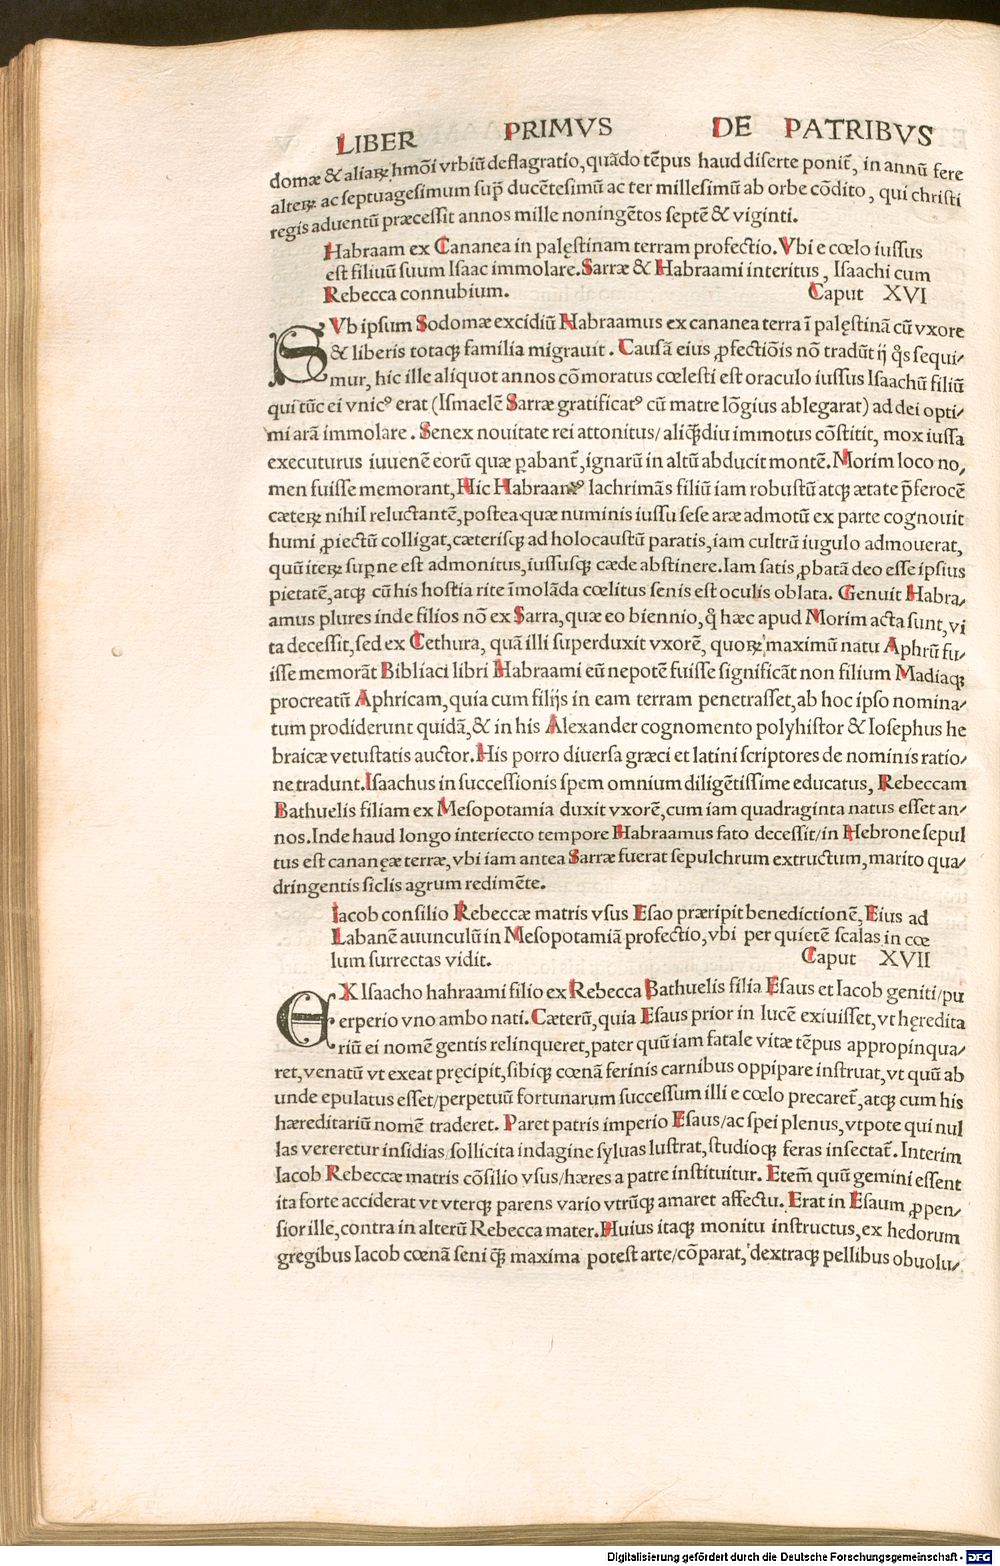 LIBER PRIMVS DE PATRIBVS
domæ & aliaꝝ hmōi vrbiū deflagratio, quādo tēpus haud diserte poniť, in annū fere
alteꝝ ac septuagesimum sup̄ ducētesimū ac ter millesimū ab orbe cōdito, qui christi
regis aduentū præcessit annos mille noningētos septē & viginti.
Habraam ex Cananea in palęstinam terram profectio. Vbi e cœlo iussus
est filiuū suum Isaac immolare. Sarræ & Habraami interitus, Isaachi cum
Rebecca connubium. Caput XVI
SVb ipsum Sodomæ excidiū Habraamus ex cananea terra ī palęstinā cū vxore
& liberis totaqꝫ familia migrauit. Causā eius ꝓfectiōis nō tradūt ij q̊s sequi/
mur, hic ille aliquot annos cōmoratus cœlesti est oraculo iussus Isaachū filiū
qui tūc ei vnicꝰ erat (Ismaelē Sarræ gratificatꝰ cū matre lōgius ablegarat) ad dei opti/
mi arā immolare. Senex nouitate rei attonitus/ aliqꝫ̄diu immotus cōstitit, mox iussa
executurus iuuenē eorū quæ ꝑabanť, ignarū in altū abducit montē. Morim loco no/
men fuisse memorant, Hic Habraamꝰ lachrimās filiū iam robustū atqꝫ ætate p̄ferocē
cæteꝝ nihil reluctantē, postea quæ numinis iussu sese aræ admotū ex parte cognouit
humi ꝓiectū colligat, cæterisqꝫ ad holocaustū paratis, iam cultrū iugulo admouerat,
quū iteꝝ suꝑne est admonitus, iussusqꝫ cæde abstinere. Iam satis ꝓbatā deo esse ipsius
pietatē, atqꝫ cū his hostia rite īmolāda cœlitus senis est oculis oblata. Genuit Habra/
amus plures inde filios nō ex Sarra, quæ eo biennio, q̊ hæc apud Morim acta sunt, vi
ta decessit, sed ex Cethura, quā illi superduxit vxorē, quoꝝ maximū natu Aphrū fu/
isse memorāt Bibliaci libri Habraami eū nepotē fuisse significāt non filium Madiaqꝫ
procreatū Aphricam, quia cum filijs in eam terram penetrasset, ab hoc ipso nomina/
tum prodiderunt quidā, & in his Alexander cognomento polyhistor & Iosephus he
braicæ vetustatis auctor. His porro diuersa græci et latini scriptores de nominis ratio/
ne tradunt. Isaachus in successionis spem omnium diligētissime educatus, Rebeccam
Bathuelis filiam ex Mesopotamia duxit vxorē, cum iam quadraginta natus esset an/
nos. Inde haud longo interiecto tempore Habraamus fato decessit/ in Hebrone sepul
tus est cananęæ terræ, vbi iam antea Sarræ fuerat sepulchrum extructum, marito qua/
dringentis siclis agrum redimēte.
Iacob consilio Rebeccæ matris vsus Esao præripit benedictionē, Eius ad
Labanē auunculū in Mesopotamiā profectio, vbi per quietē scalas in cœ
lum surrectas vidit. Caput XVII
EX Isaacho hahraami filio ex Rebecca Bathuelis filia Esaus et Iacob geniti/ pu
erperio vno ambo nati. Cæterū, quia Esaus prior in lucē exiuisset, vt hęredita
riū ei nomē gentis relinqueret, pater quū iam fatale vitæ tēpus appropinqua/
ret, venatū vt exeat pręcipit, sibiqꝫ cœnā ferinis carnibus oppipare instruat, vt quū ab
unde epulatus esset/ perpetuū fortunarum successum illi e cœlo precareť, atqꝫ cum his
hæreditariū nomē traderet. Paret patris imperio Esaus/ ac spei plenus, vtpote qui nul
las vereretur insidias/ sollicita indagine syluas lustrat, studioqꝫ feras insectať. Interim
Iacob Rebeccæ matris cōsilio vsus/ hæres a patre instituitur. Etem̄ quū gemini essent
ita forte acciderat vt vterqꝫ parens vario vtrūqꝫ amaret affectu. Erat in Esaum ꝓpen/
sior ille, contra in alterū Rebecca mater. Huius itaqꝫ monitu instructus, ex hedorum
gregibus Iacob cœnā seni qꝫ̄ maxima potest arte/ cōparat, dextraqꝫ pellibus obuolu/
Digitalisierung gefördert durch die Deutsche Forschungsgemeinschaft - DFG